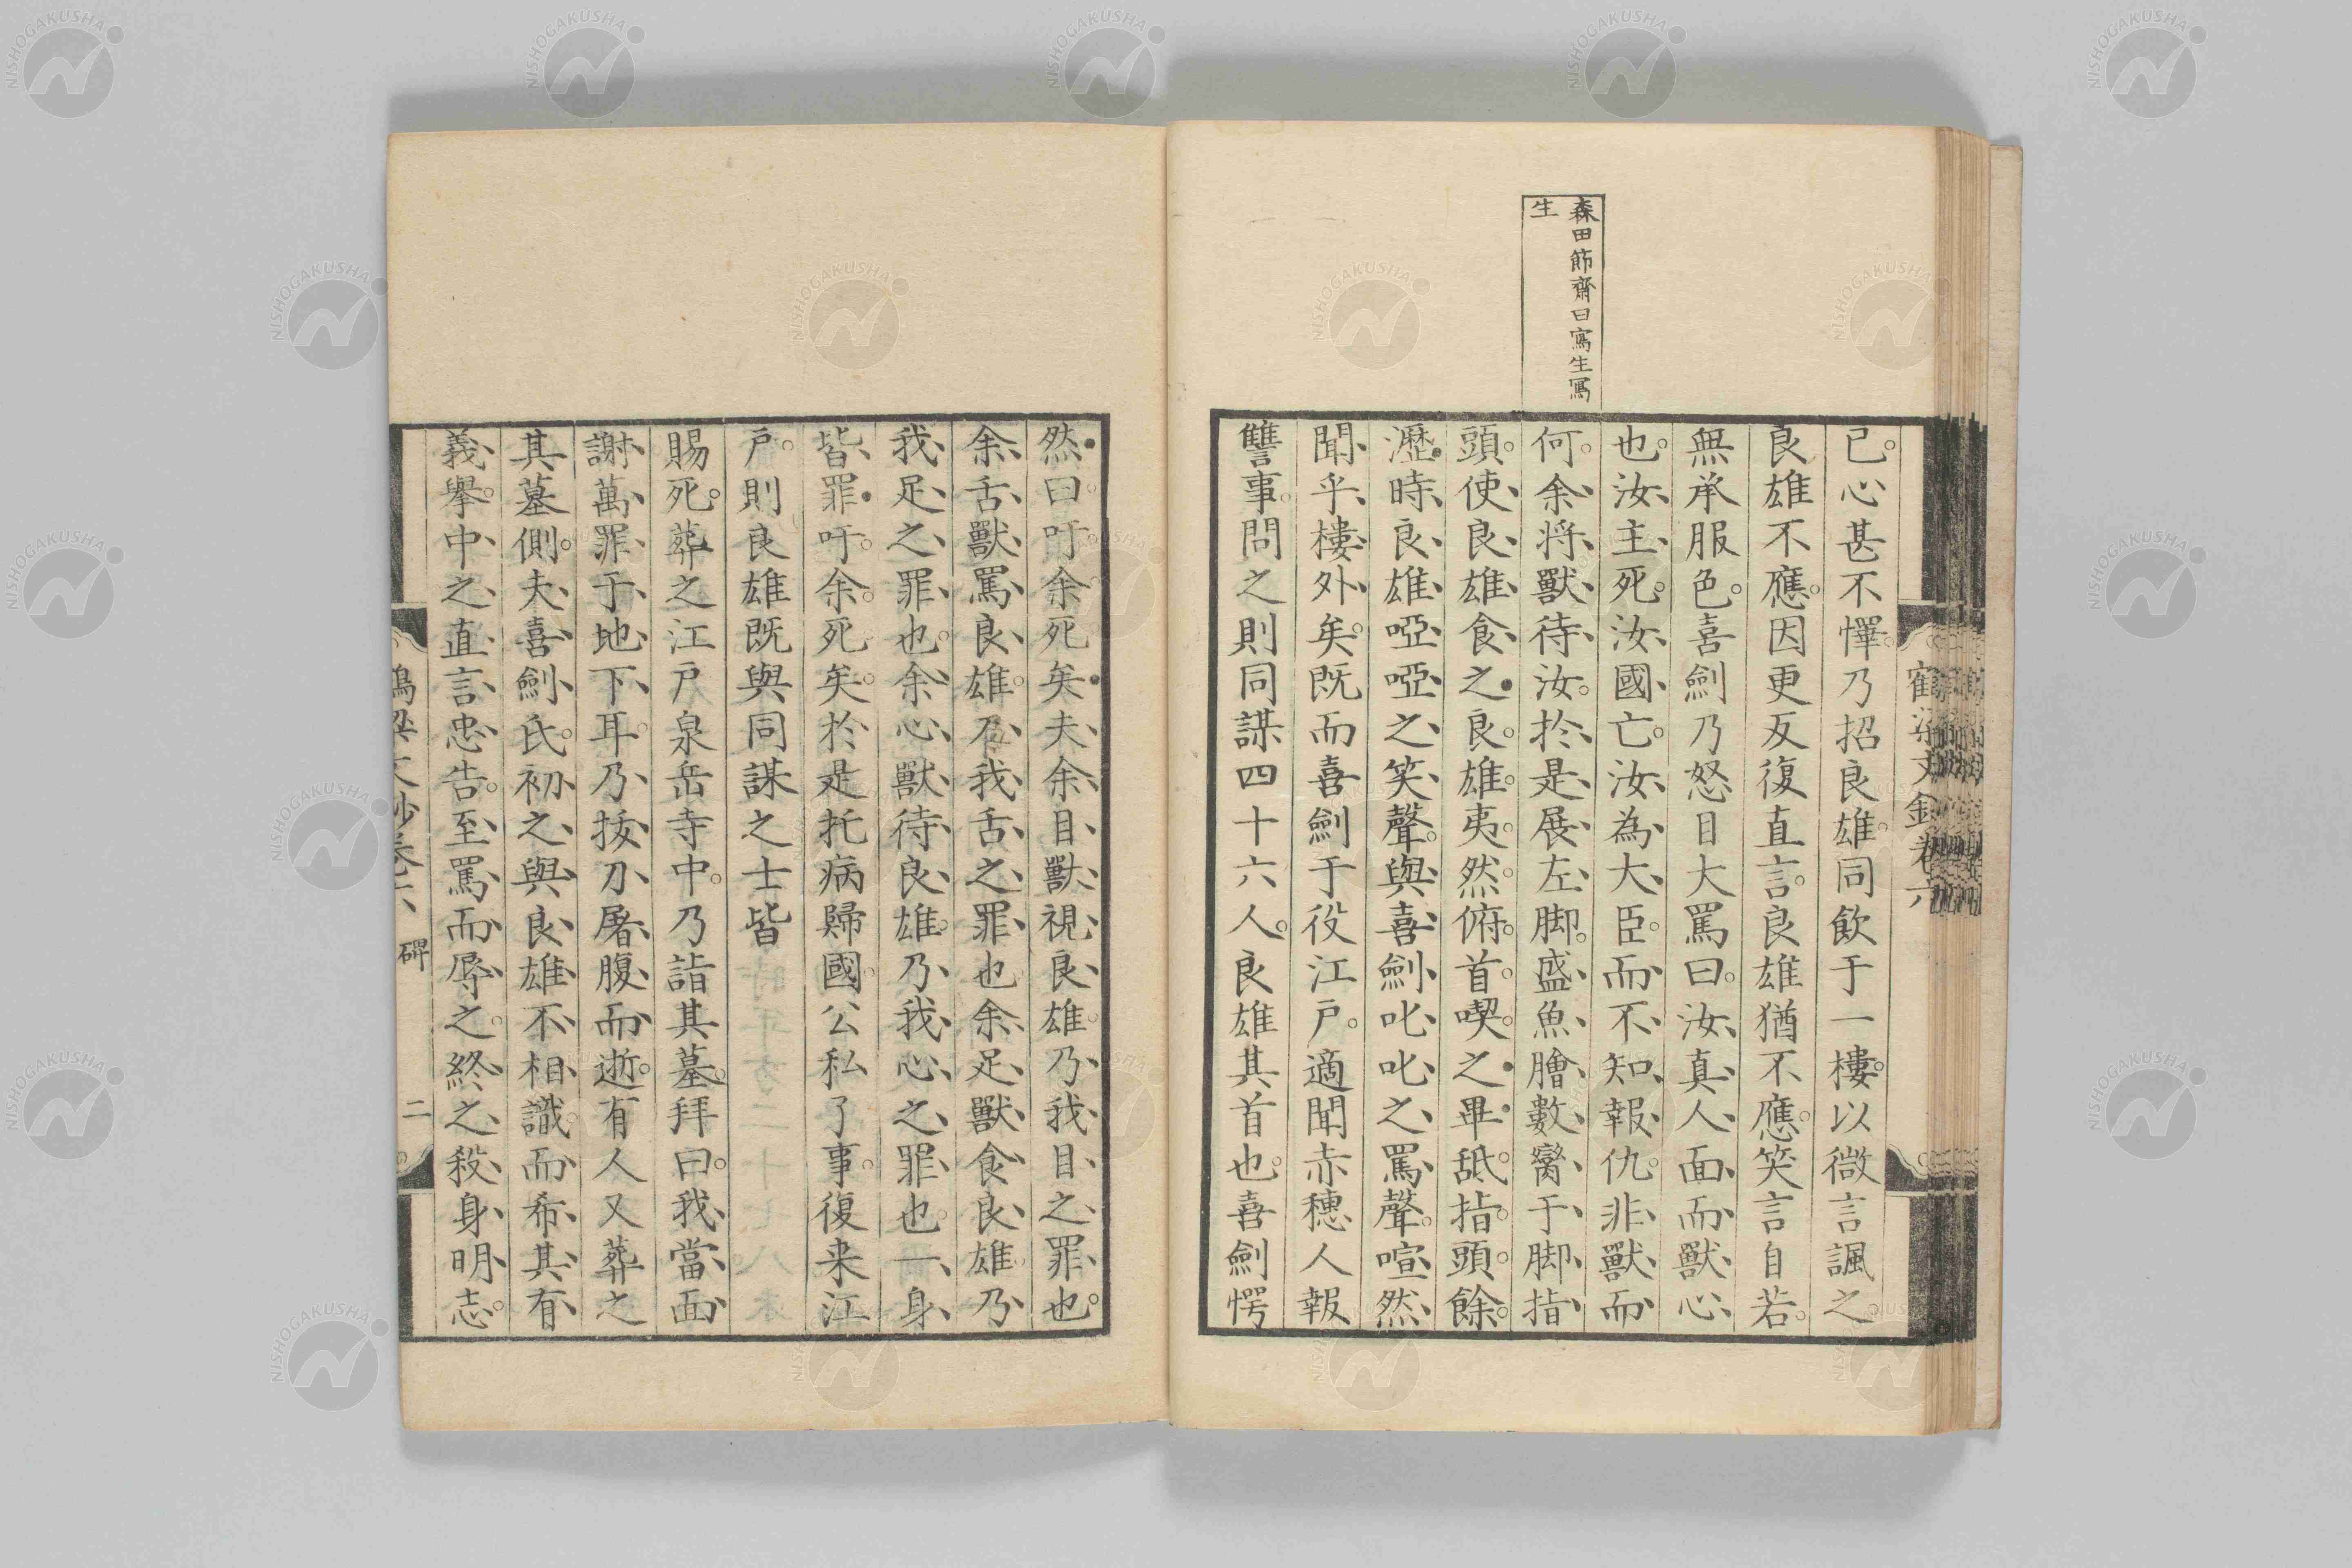 森田節齋曰寫生寫
生
已。心甚不懌。乃招良雄。同飲于一樓。以微言諷之。
良雄不應。因更反復直言。良雄猶不應。笑言自若。
無承服色。喜劍乃怒目大罵曰。汝真人面而獸心
也。汝主死。汝國亡。汝為大臣。而不知報仇。非獸而
何。余將獸待汝。於是展左脚。盛魚膾數臠于脚指
頭。使良雄食之。良雄夷然俯首喫之。畢。舐指頭餘
瀝。時良雄啞啞之笑聲。與喜劍叱叱之罵聲。喧然
聞乎樓外矣。既而喜劍于役江戶。適聞赤穗人報
讐事。問之則同謀四十六人。良雄其首也。喜劍愕
然曰。吁余死矣。夫余目獸視良雄。乃我目之罪也。
余舌獸罵良雄。乃我舌之罪也。余足獸食良雄。乃
我足之罪也。余心獸待良雄。乃我心之罪也。一身
皆罪。吁余死矣。於是托病歸國。公私了事。復来江
戶。則良雄既與同謀之士皆
賜死。葬之江戶泉岳寺中。乃詣其墓。拜曰。我當面
謝萬罪于地下耳。乃拔刀屠腹而逝。有人又葬之
其墓側。夫喜劍氏。初之與良雄不相識。而希其有
義擧。中之直言忠告。至罵而辱之。終之殺身明志。
碑
二